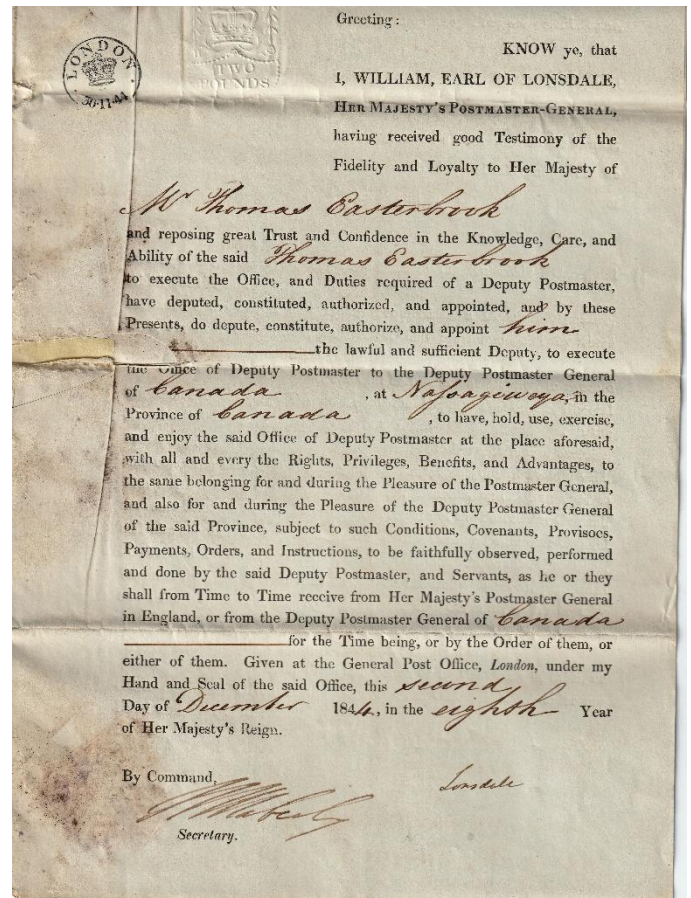 Greeting:
LONDON
30·11·44
TWO
POUNDS
KNOW ye, that
I, WILLIAM, EARL OF LONSDALE,
HER MAJESTY'S POSTMASTER-GENERAL,
having received good Testimony of the
Fidelity and Loyalty to Her Majesty of
Mr Thomas Easterbrook
and reposing great Trust and Confidence in the Knowledge, Care, and
Ability of the said Thomas Easterbrook
to execute the Office, and Duties required of a Deputy Postmaster,
have deputed, constituted, authorized, and appointed, and by these
Presents, do depute, constitute, authorize, and appoint him
the lawful and sufficient Deputy, to execute
the Office of Deputy Postmaster to the Deputy Postmaster General
of Canada , at Nassagiweya, in the
Province of Canada , to have, hold, use, exercise,
and enjoy the said Office of Deputy Postmaster at the place aforesaid,
with all and every the Rights, Privileges, Benefits, and Advantages, to
the same belonging for and during the Pleasure of the Postmaster General,
and also for and during the Pleasure of the Deputy Postmaster General
of the said Province, subject to such Conditions, Covenants, Provisoes,
Payments, Orders, and Instructions, to be faithfully observed, performed
and done by the said Deputy Postmaster, and Servants, as he or they
shall from Time to Time receive from Her Majesty's Postmaster General
in England, or from the Deputy Postmaster General of Canada
for the Time being, or by the Order of them, or
either of them. Given at the General Post Office, London, under my
Hand and Seal of the said Office, this second
Day of December 1844, in the eighth Year
of Her Majesty's Reign.
By Command,
Lonsdale
W Maberly
Secretary.